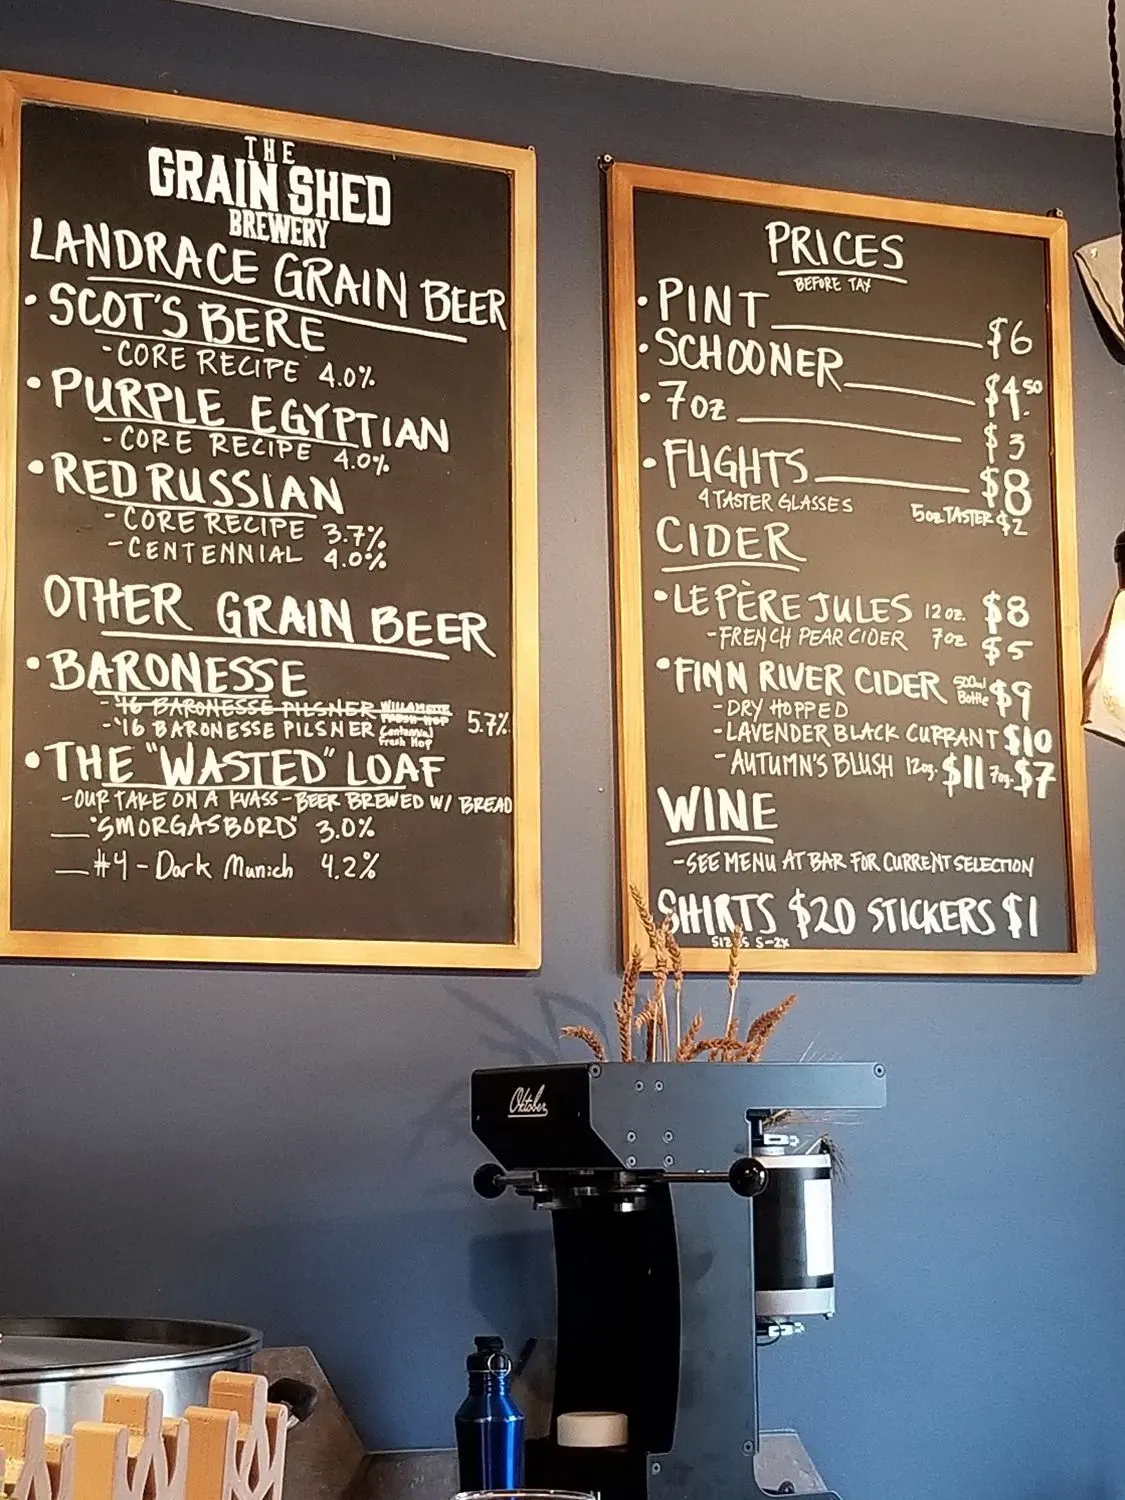 THE
GRAIN SHED
BREWERY
LANDRACE GRAIN BEER
• SCOT'S BERE
- CORE RECIPE 4.0%
• PURPLE EGYPTIAN
- CORE RECIPE 4.0%
• RED RUSSIAN
- CORE RECIPE 3.7%
- CENTENNIAL 4.0%
OTHER GRAIN BEER
• BARONESSE
- '16 BARONESSE PILSNER WILLAMETTE FRESH HOP
- '16 BARONESSE PILSNER Centennial Fresh Hop 5.7%
• THE "WASTED" LOAF
- OUR TAKE ON A KVASS - BEER BREWED W/ BREAD
__ "SMORGASBORD" 3.0%
__ #4 - Dark Munich 4.2%
PRICES
BEFORE TAX
• PINT $6
• SCHOONER $4.50
• 7oz $3
• FLIGHTS $8
4 TASTER GLASSES 5oz TASTER $2
CIDER
• LE PÈRE JULES 12oz. $8
- FRENCH PEAR CIDER 7oz $5
• FINN RIVER CIDER 500ml Bottle $9
- DRY HOPPED
- LAVENDER BLACK CURRANT $10
- AUTUMN'S BLUSH 12oz. $11 7oz. $7
WINE
- SEE MENU AT BAR FOR CURRENT SELECTION
SHIRTS $20 STICKERS $1
SIZES S-2X
Oktober